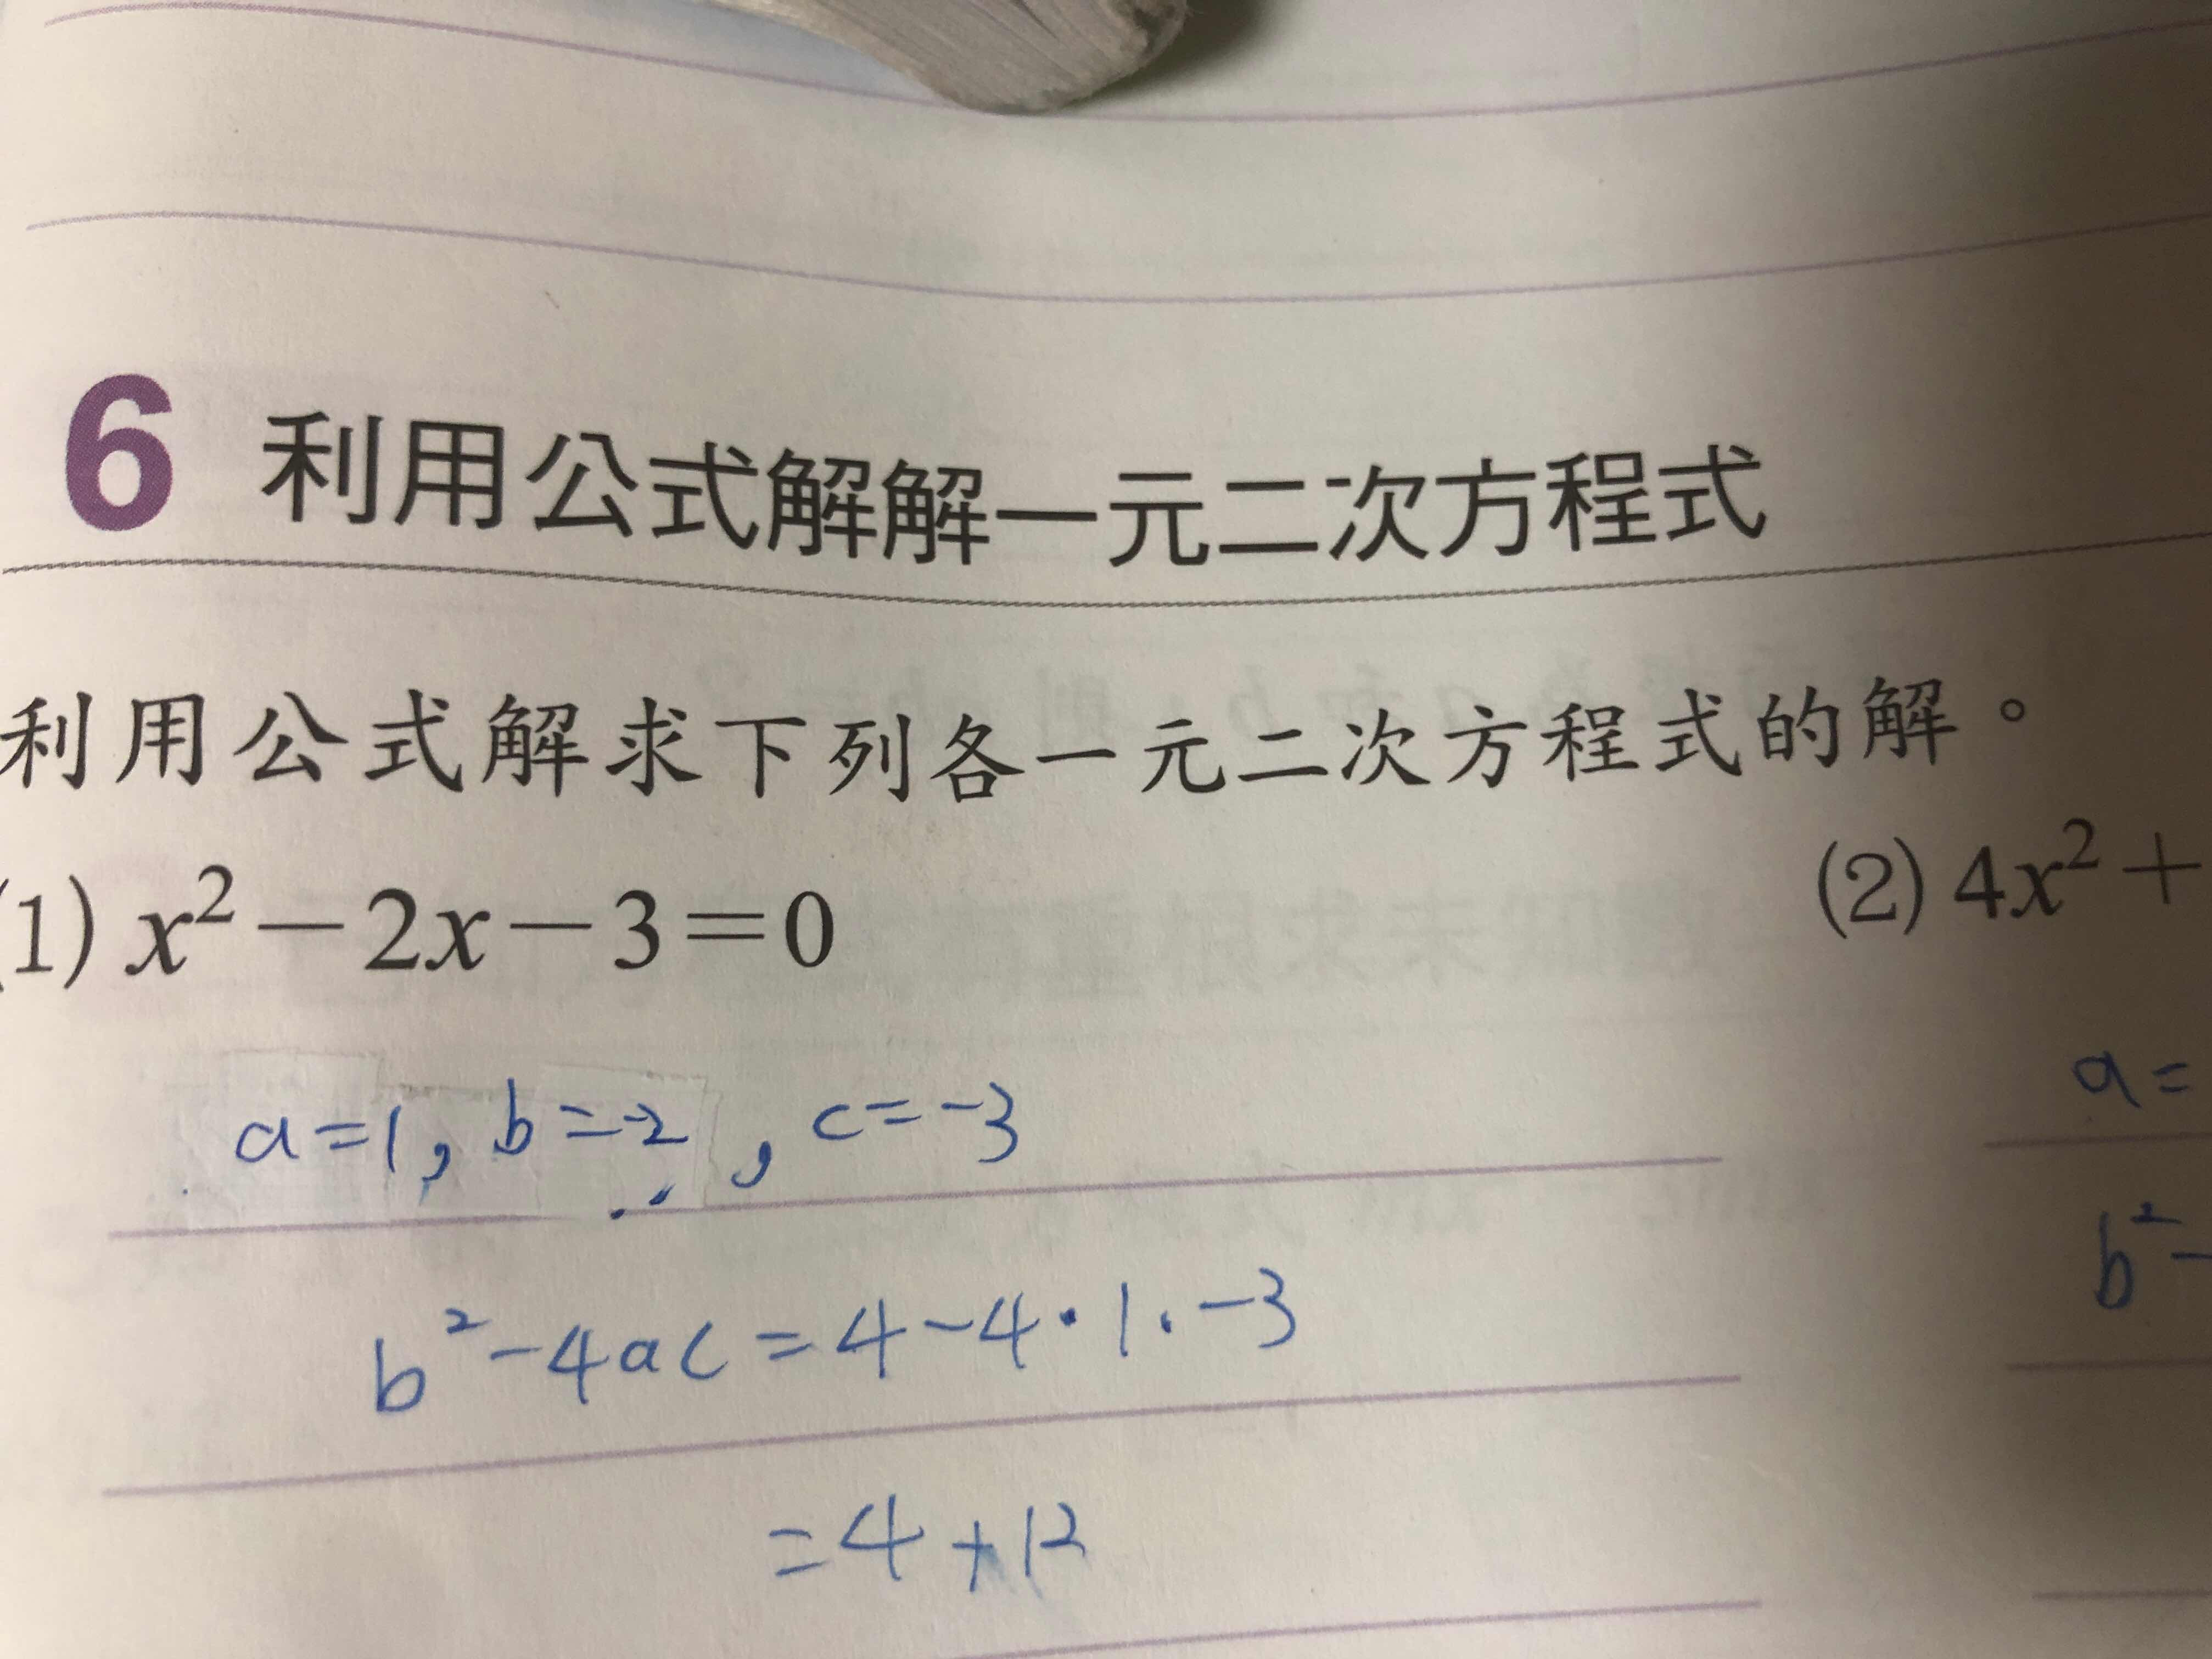 6 利用公式解解一元二次方程式
利用公式解求下列各一元二次方程式的解。
(1) x² − 2x − 3 = 0
(2) 4x² +
a = 1, b = -2, c = -3
a =
b² - 4ac = 4 - 4 · 1 · -3
b² -
= 4 + 12